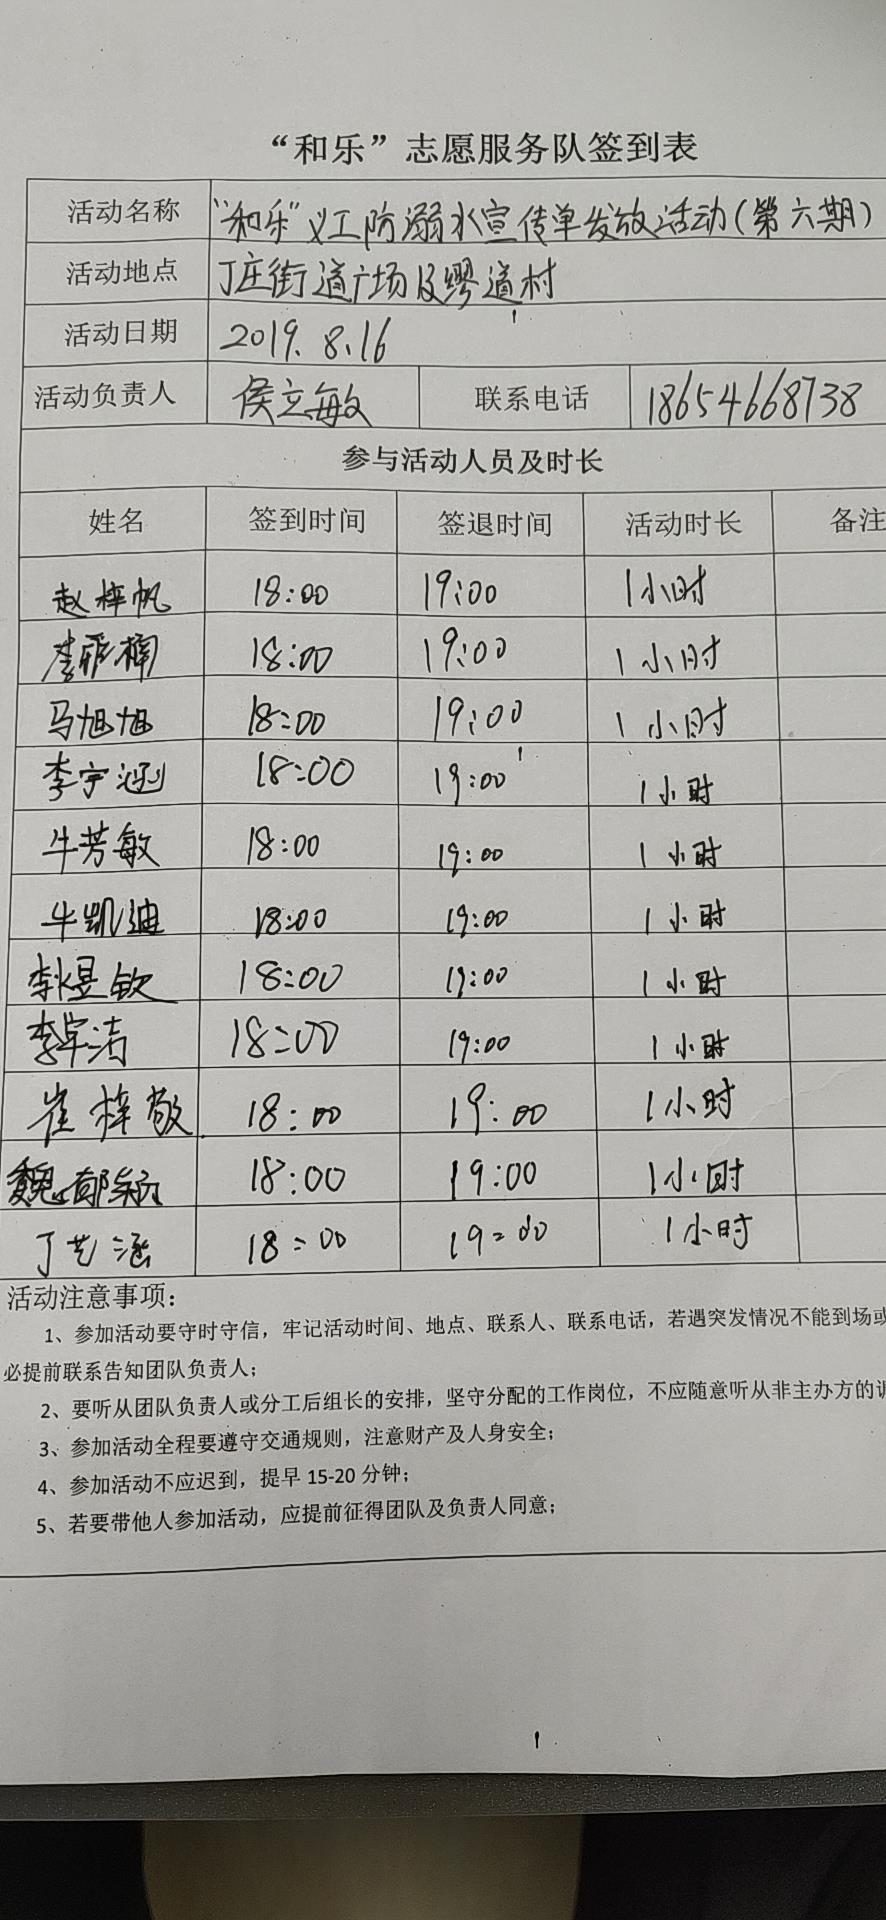 “和乐”志愿服务队签到表
活动名称 “和乐”义工防溺水宣传单发放活动(第六期)
活动地点 丁庄街道广场及缪道村
活动日期 2019.8.16
活动负责人 侯立敏 联系电话 18654668738
参与活动人员及时长
姓名 签到时间 签退时间 活动时长 备注
赵梓帆 18:00 19:00 1小时
李雅楠 18:00 19:00 1小时
马旭旭 18:00 19:00 1小时
李宇涵 18:00 19:00 1小时
牛芳敏 18:00 19:00 1小时
牛凯迪 18:00 19:00 1小时
李昱钦 18:00 19:00 1小时
李卓洁 18:00 19:00 1小时
崔梓敬 18:00 19:00 1小时
魏郁颖 18:00 19:00 1小时
丁艺涵 18:00 19:00 1小时
活动注意事项：
1、参加活动要守时守信，牢记活动时间、地点、联系人、联系电话，若遇突发情况不能到场或
必提前联系告知团队负责人；
2、要听从团队负责人或分工后组长的安排，坚守分配的工作岗位，不应随意听从非主办方的
3、参加活动全程要遵守交通规则，注意财产及人身安全；
4、参加活动不应迟到，提早 15-20 分钟；
5、若要带他人参加活动，应提前征得团队及负责人同意；